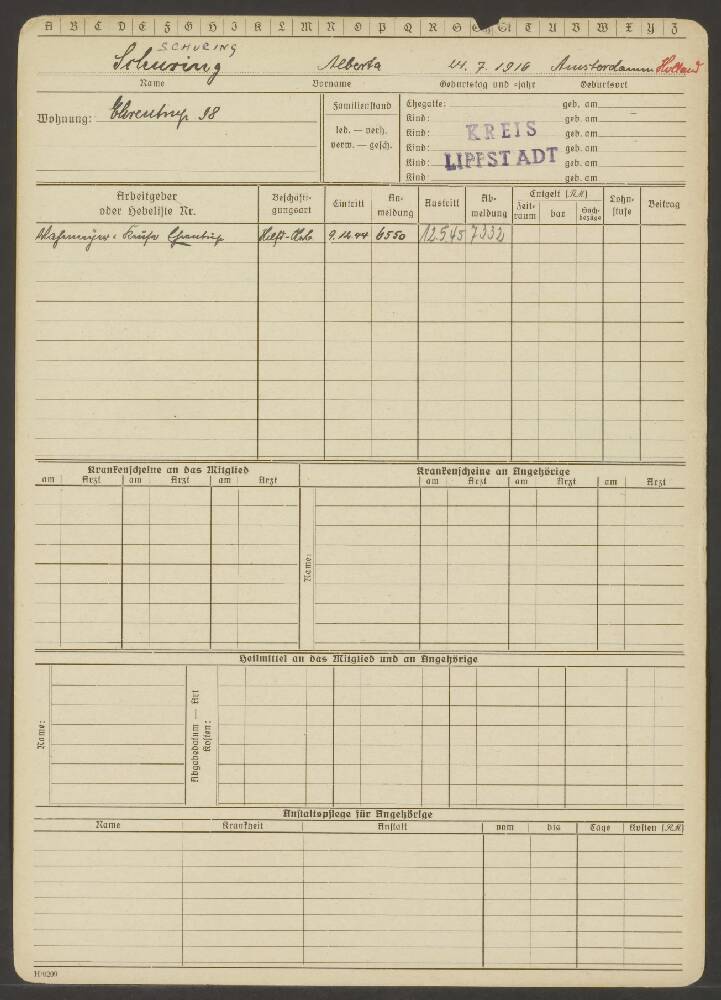 A B C D E F G H I K L M N O P Q R S Sch St T U V W X Y Z
SCHURING
Schuring Alberta 21. 7. 1916 Amsterdamm Holland
Name Vorname Geburtstag und =jahr Geburtsort
Wohnung: Ehrentrup 98
Familienstand
led. — verh.
verw. — gesch.
Ehegatte: geb. am
Kind: geb. am
Kind: geb. am
Kind: geb. am
Kind: geb. am
Kind: geb. am
KREIS
LIPPSTADT
Arbeitgeber oder Hebeliste Nr.
Beschäfti-gungsart
Eintritt
An-meldung
Austritt
Ab-meldung
Entgelt (RM)
Zeit-raum
bar
Sach-bezüge
Lohn-stufe
Beitrag
9.12.44 6550 12545 7332
Krankenscheine an das Mitglied
am Arzt am Arzt am Arzt
Krankenscheine an Angehörige
am Arzt am Arzt am Arzt
Name:
Heilmittel an das Mitglied und an Angehörige
Name:
Abgabedatum — Art
Kosten:
Anstaltspflege für Angehörige
Name Krankheit Anstalt vom bis Tage Kosten (RM)